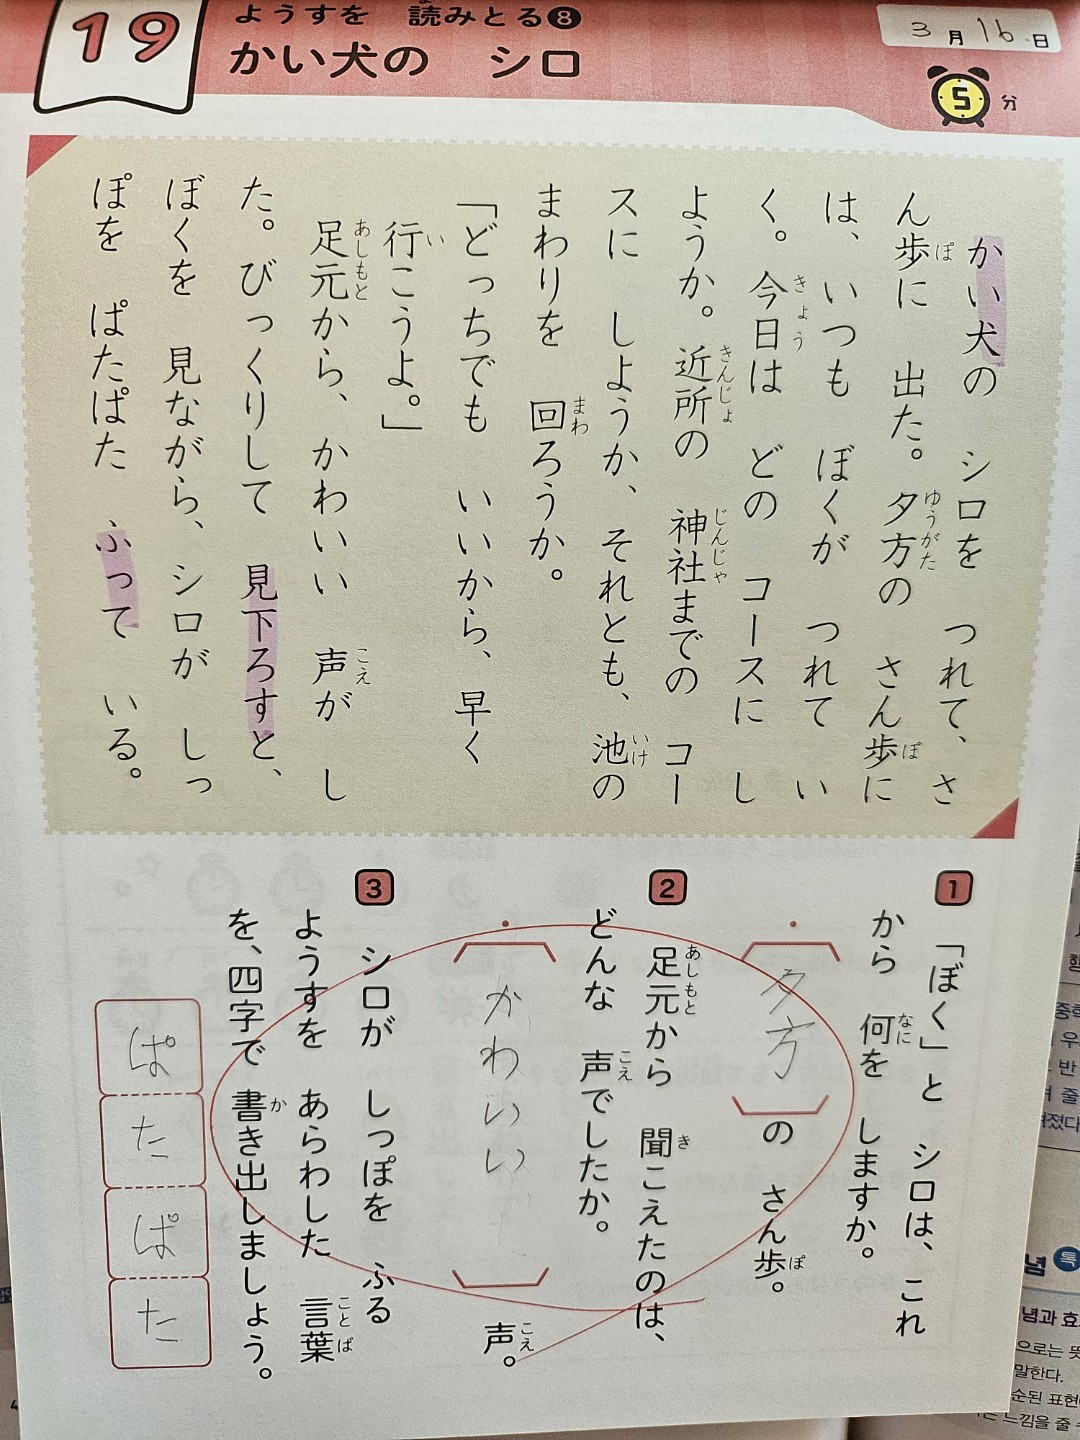 19
ようすを 読みとる❽
かい犬の シロ
3月16日
5分
かい犬の シロを つれて、さ
ん歩に 出た。夕方の さん歩に
は、いつも ぼくが つれて い
く。今日は どの コースに し
ようか。近所の 神社までの コー
スに しようか、それとも、池の
まわりを 回ろうか。
「どっちでも いいから、早く
行こうよ。」
足元から、かわいい 声が し
た。びっくりして 見下ろすと、
ぼくを 見ながら、シロが しっ
ぽを ぱたぱた ふって いる。
1
「ぼく」と シロは、これ
から 何を しますか。
夕方 の さん歩。
2
足元から 聞こえたのは、
どんな 声でしたか。
かわいい 声。
3
シロが しっぽを ふる
ようすを あらわした 言葉
を、四字で 書き出しましょう。
ぱたぱた